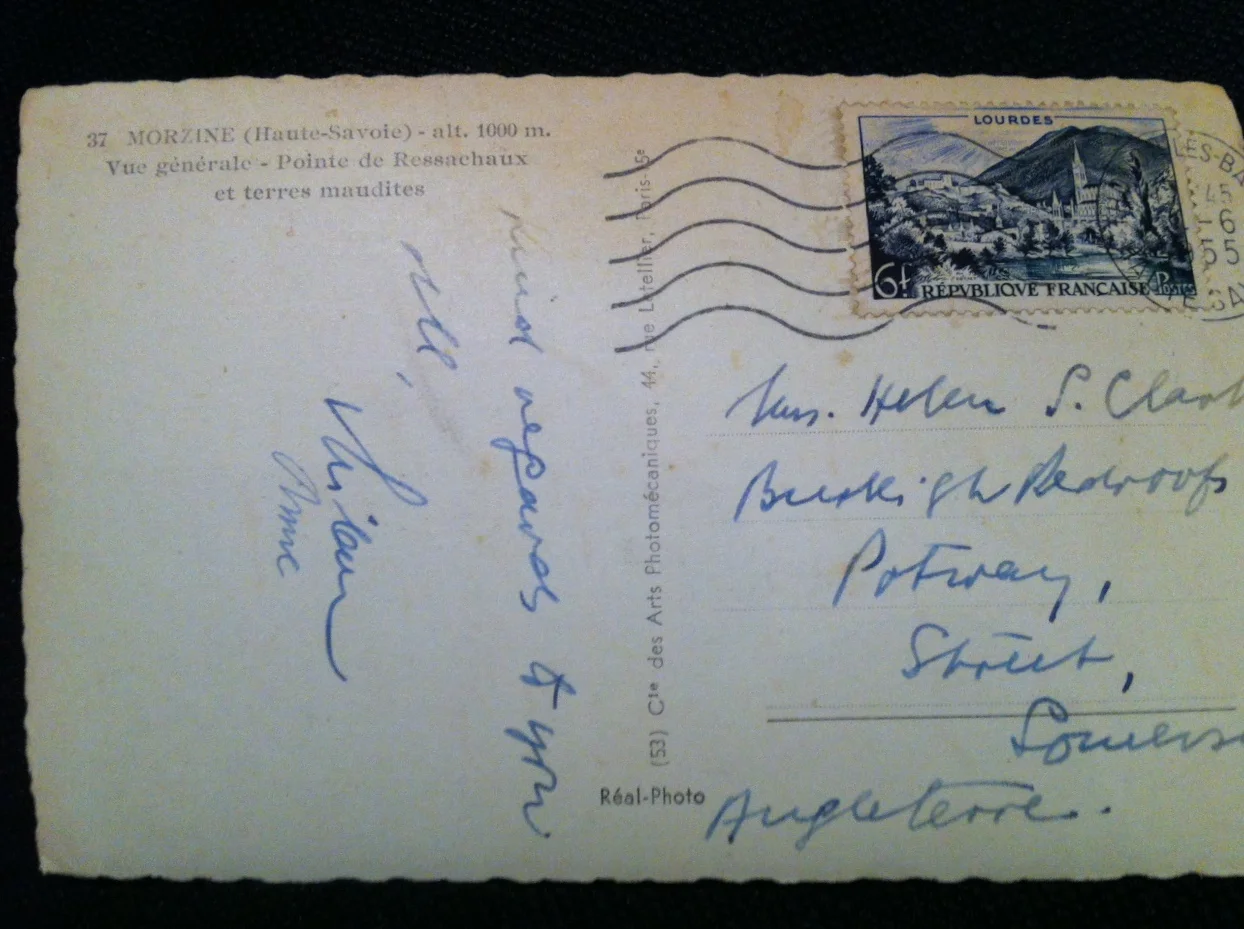 37 MORZINE (Haute-Savoie) - alt. 1000 m.
Vue générale - Pointe de Ressachaux
et terres maudites
Kind regards to you
all,
(53) Cie des Arts Photomécaniques, 44, rue Letellier, Paris-15e
Réal-Photo
LOURDES
6f RÉPVBLIQVE FRANÇAISE POSTES
45
-6
55
Helen S. Clark
Burleigh Redroofs
Potway,
Street,
Somers
Angleterre.